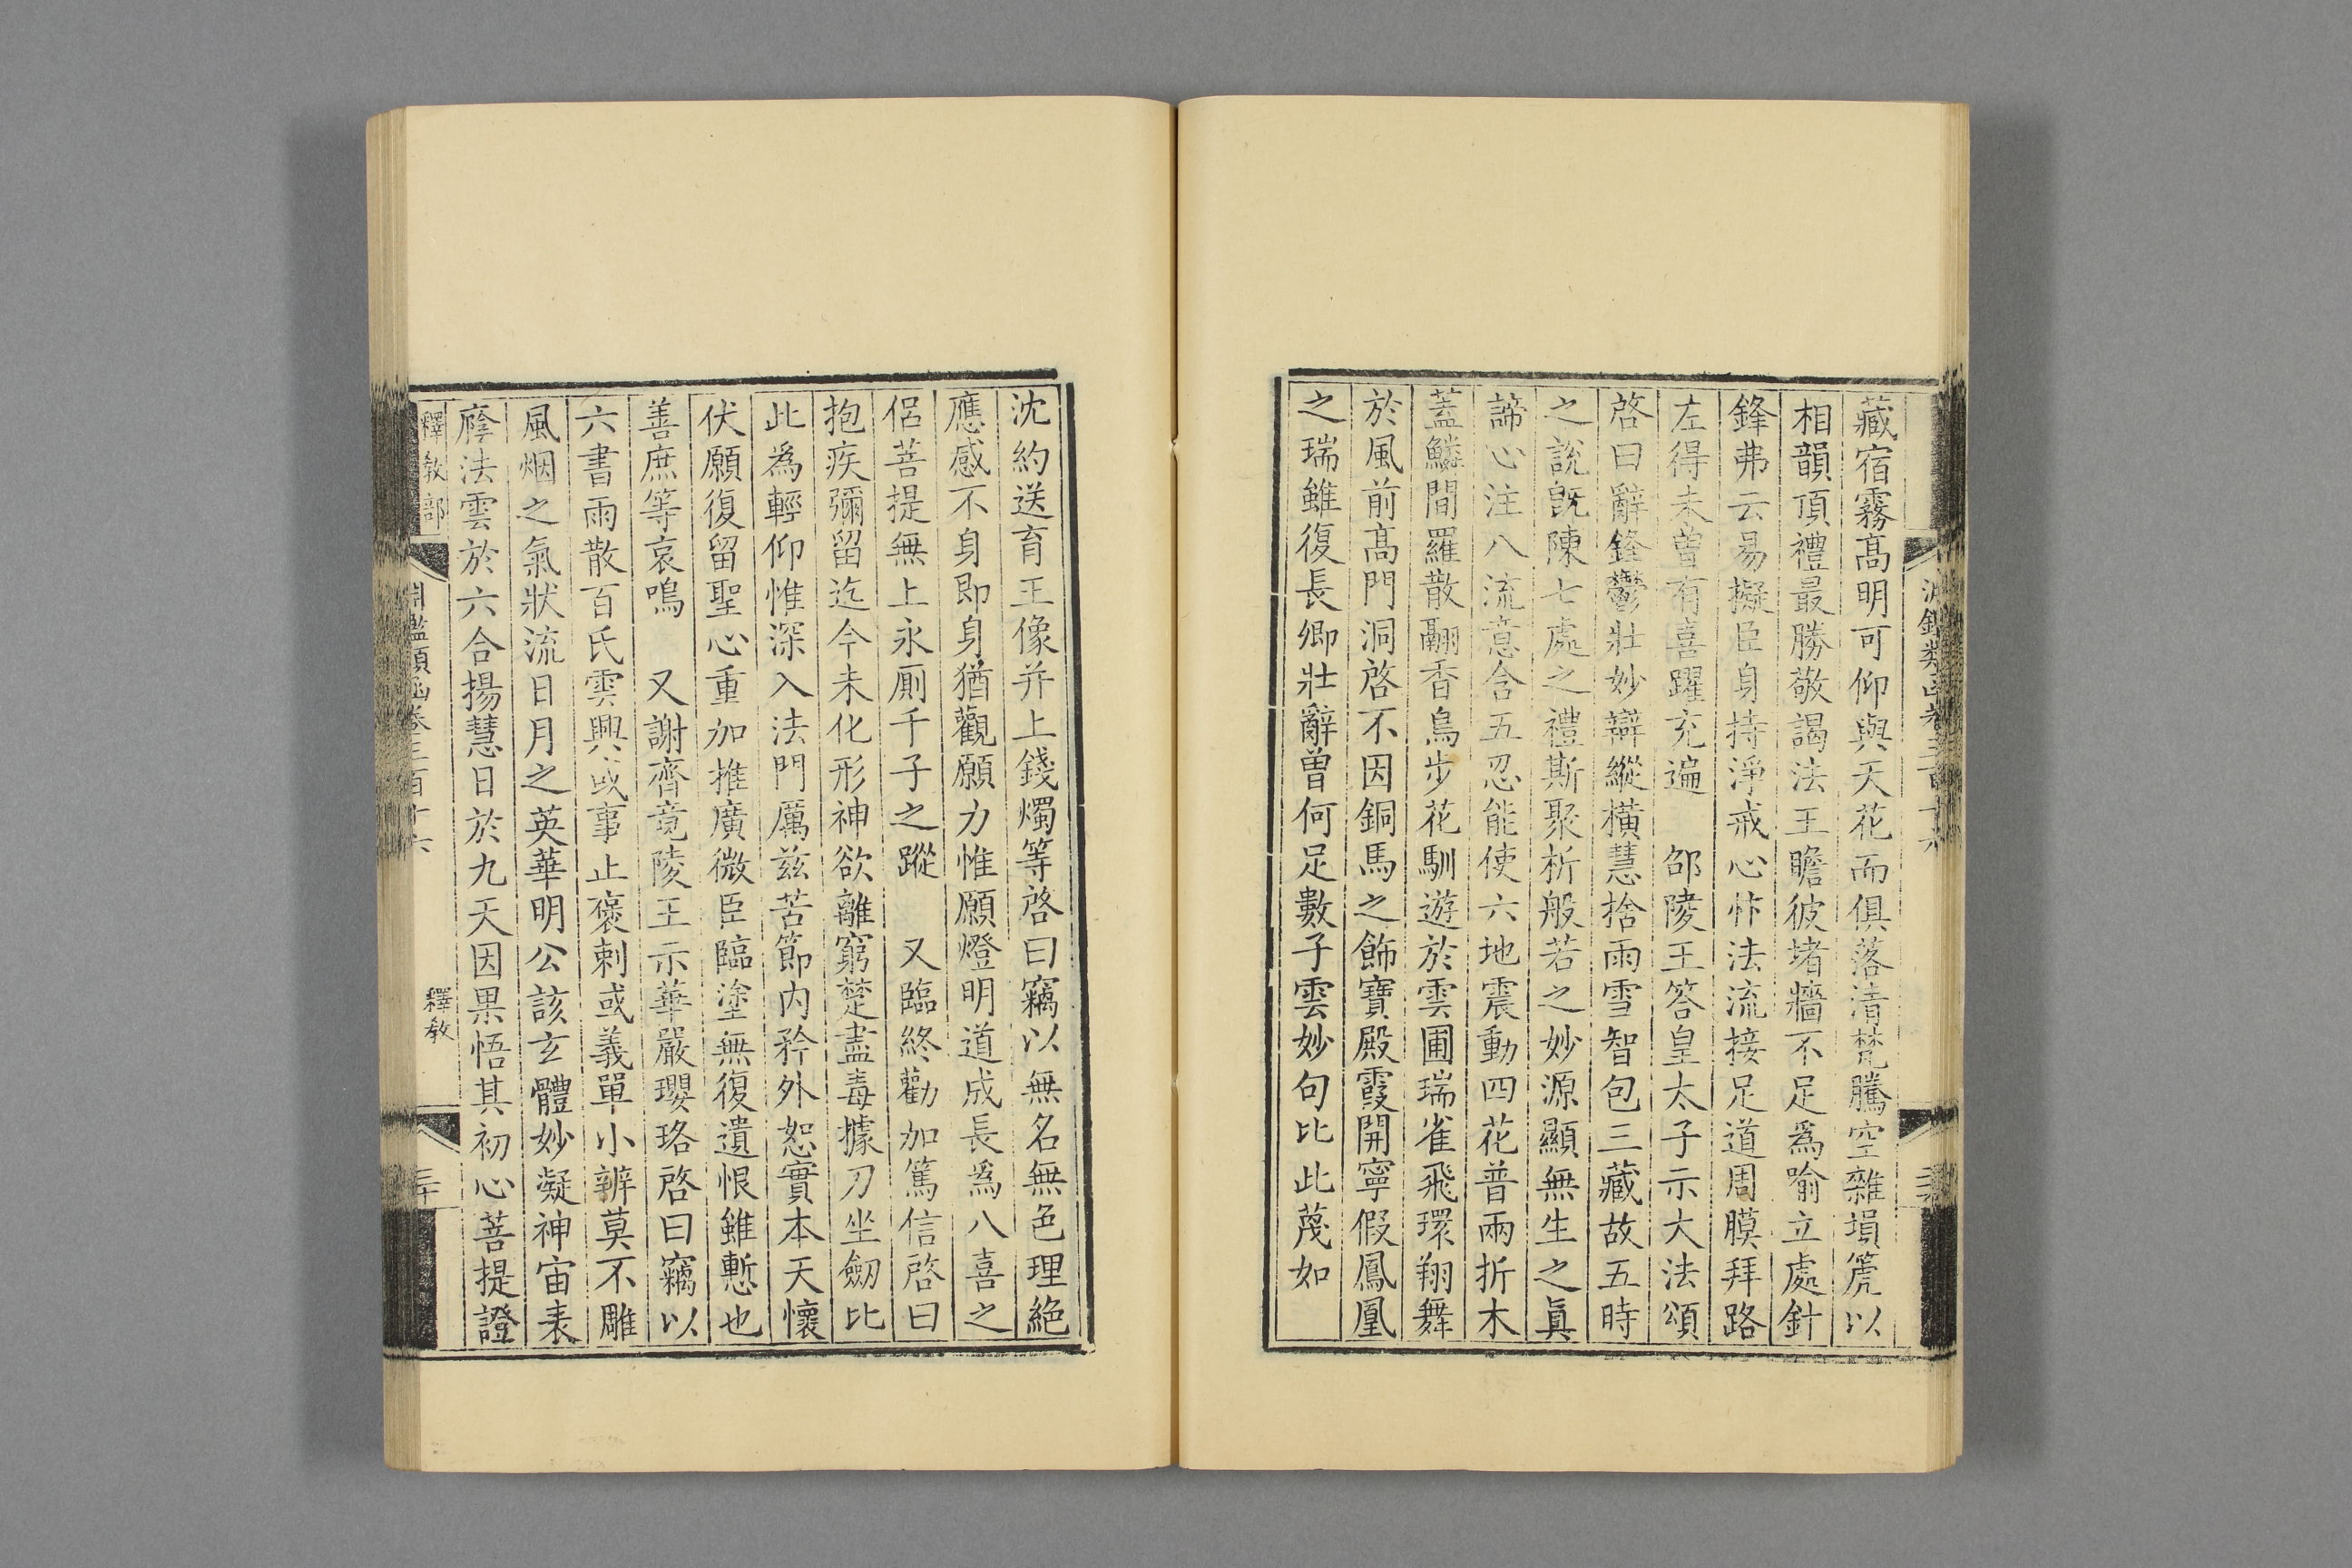 藏宿霧高明可仰與天花而俱落清梵騰空雜塤篪以
相韻頂禮最勝敬謁法王瞻彼堵牆不足為喻立處針
鋒弗云易擬臣身持淨戒心怀法流接足道周膜拜路
左得未曾有喜躍充遍 邵陵王答皇太子示大法頌
啓曰辭鋒鬱壯妙辯縱橫慧捨雨雪智包三藏故五時
之說旣陳七處之禮斯聚析般若之妙源顯無生之眞
諦心注八流意含五忍能使六地震動四花普雨折木
蓋鱗間羅散翮香烏步花馴遊於雲圃瑞雀飛環翔舞
於風前高門洞啓不因銅馬之飾寶殿霞開寧假鳳凰
之瑞雖復長卿壯辭曾何足數子雲妙句比此蔑如
沈約送育王像并上錢燭等啓曰竊以無名無色理絶
應感不身即身猶觀願力惟願燈明道成長爲八喜之
侶菩提無上永厠千子之蹤 又臨終勸加篤信啓曰
抱疾彌留迄今未化形神欲離窮楚盡毒據刀坐劒比
此爲輕仰惟深入法門厲兹苦節内矜外恕實本天懷
伏願復留聖心重加推廣微臣臨塗無復遺恨雖慙也
善庶等哀鳴 又謝齊竟陵王示華嚴瓔珞啓曰竊以
六書雨散百氏雲興或事止褒刺或義單小辨莫不雕
風烟之氣狀流日月之英華明公該玄體妙凝神宙表
廕法雲於六合揚慧日於九天因果悟其初心菩提證
釋教部
淵鑑類函卷三百十六
釋教
三十